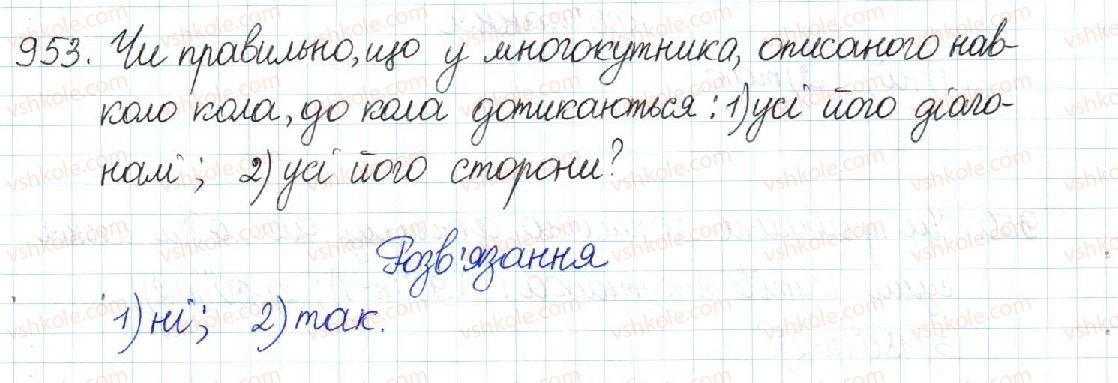 953. Чи правильно, що у многокутника, описаного нав-
коло кола, до кола дотикаються: 1) усі його діаго-
налі; 2) усі його сторони?
Розв'язання
1) ні; 2) так.